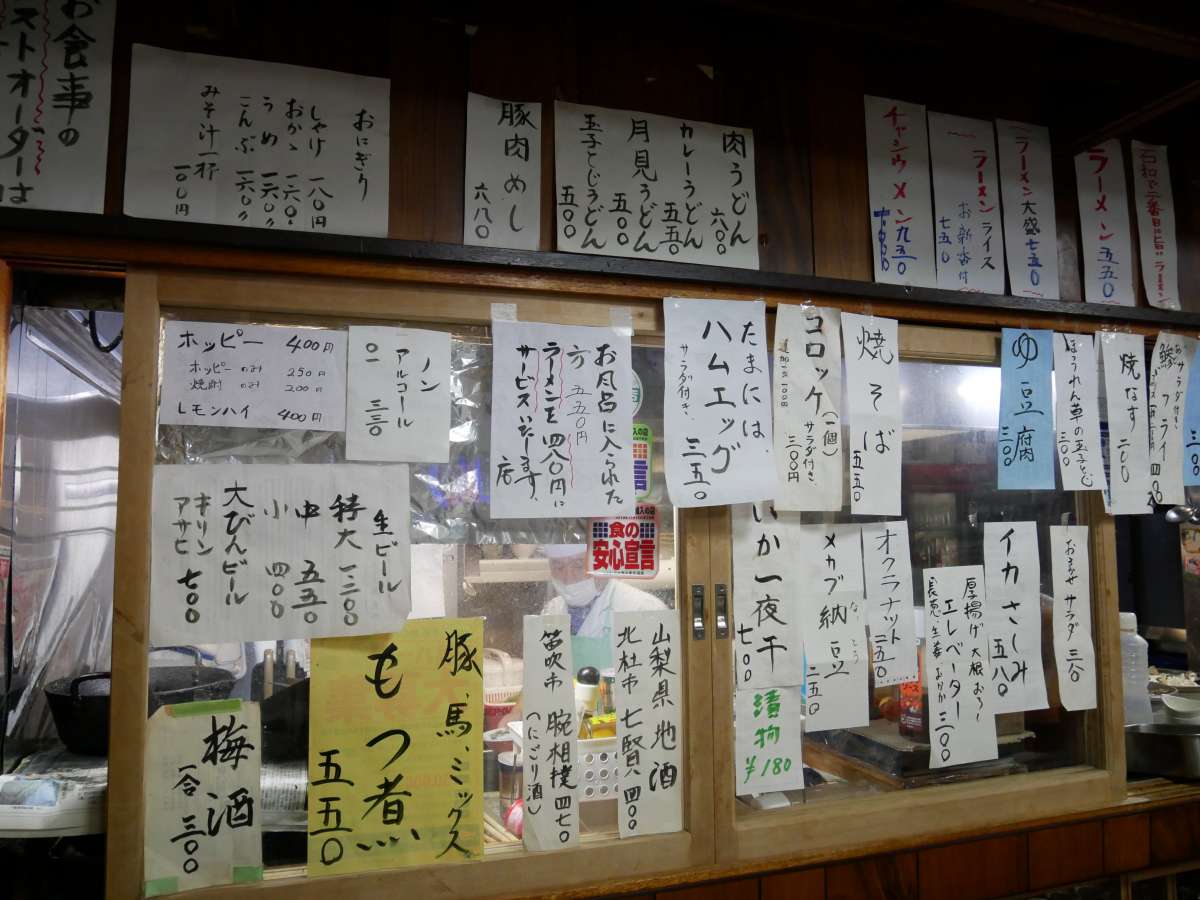 お食事の
ストオーダーは
おにぎり
しゃけ 一八〇円
おかゝ 一六〇〃
うめ 一六〇〃
こんぶ 一六〇〃
みそ汁一杯
一〇〇円
豚肉めし
六八〇
肉うどん
六〇〇
カレーうどん
五五〇
月見うどん
五〇〇
玉子とじうどん
五〇〇
チャーシュウメン 九五〇
ラーメン ライス
お新香付
七五〇
ラーメン大盛七五〇
ラーメン 五五〇
ラーメン
ホッピー 400円
ホッピー のみ 250円
焼酎 のみ 200円
レモンハイ 400円
ノン
アルコール
お風呂に入られた
方 五五〇円
ラーメンを四八〇円に
サービスいたします。
店
たまには
ハムエッグ
サラダ付き、
三五〇
コロッケ
(一個)
サラダ付き、
三〇〇円
焼そば
五五〇
ゆ豆腐
三〇〇
ほうれん草の玉子とじ
三〇〇
焼なす 二〇〇
サラダ付き
鯵フライ
生ビール
特大 一三〇〇
中 五五〇
小 四〇〇
大びんビール
キリン
アサヒ 七〇〇
食の
安心宣言
いか一夜干
七〇〇
メカブ納豆
なっとう
二五〇
オクラナット
二五〇
厚揚げ大根おろし
エレベーター
長葱生姜おかか 三〇〇
イカさしみ
五八〇
おまかせサラダ 三八〇
梅酒
一合 三〇〇
豚、馬、ミックス
もつ煮
五五〇
笛吹市 腕相撲 四七〇
(にごり酒)
山梨県地酒
北杜市 七賢 四〇〇
漬物
¥180